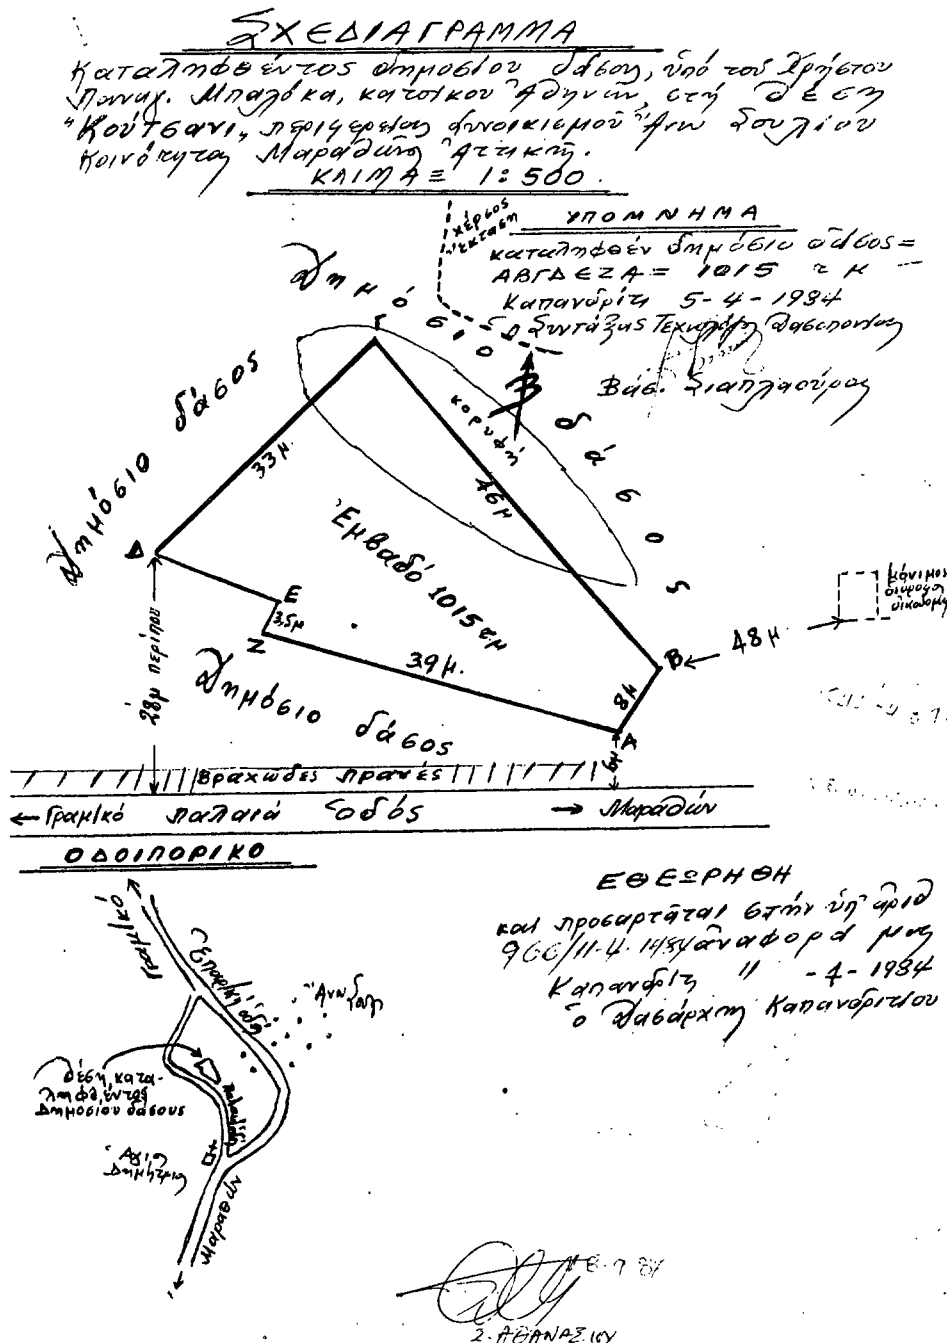 ΣΧΕΔΙΑΓΡΑΜΜΑ
Καταληφθέντος δημοσίου δάσους, ὑπό τοῦ Χρήστου
Παναγ. Μπαλόκα, κατοίκου Ἀθηνῶν, στή θέση
"Κούτσανι", περιφερείας συνοικισμοῦ Ἄνω Σουλίου
Κοινότητας Μαραθῶνος Ἀττικῆς.
ΚΛΙΜΑΞ 1:500.
ΥΠΟΜΝΗΜΑ
Καταληφθέν δημόσιο δάσος=
ΑΒΓΔΕΖΑ = 1015 τμ
Καπανδρίτι 5-4-1984
Ὁ Συντάξας Τεχνολόγος Δασοπονίας
Βασ.
χέρσος
ἔκταση
Δημόσιο δάσος
Γ
Β
κορυφή
Δημόσιο δάσος
33μ.
46μ
Ἐμβαδό 1015τμ
Δ
Ε
3,5μ
Ζ
39μ.
Β
8μ
Α
48μ.
μόνιμος
οἰκοδομή
28μ περίπου
6μ
Δημόσιο δάσος
Βραχῶδες πρανές
← Γραμ/κό παλαιά ὁδός → Μαραθών
ΟΔΟΙΠΟΡΙΚΟ
Γραμ/κό
Ἐπαρχ/κή ὁδός
Ἄνω Σούλι
θέση κατα-
ληφθέντος
Δημοσίου δάσους
Παλαιά ὁδός
Ἁγία
Μαραθών
ΕΘΕΩΡΗΘΗ
καί προσαρτᾶται στήν ὑπ' ἀριθ
966/11-4-1984 ἀναφορά μας
Καπανδρίτι 11-4-1984
ὁ Δασάρχης Καπανδριτίου
Σ. ΑΘΑΝΑΣΙΟΥ